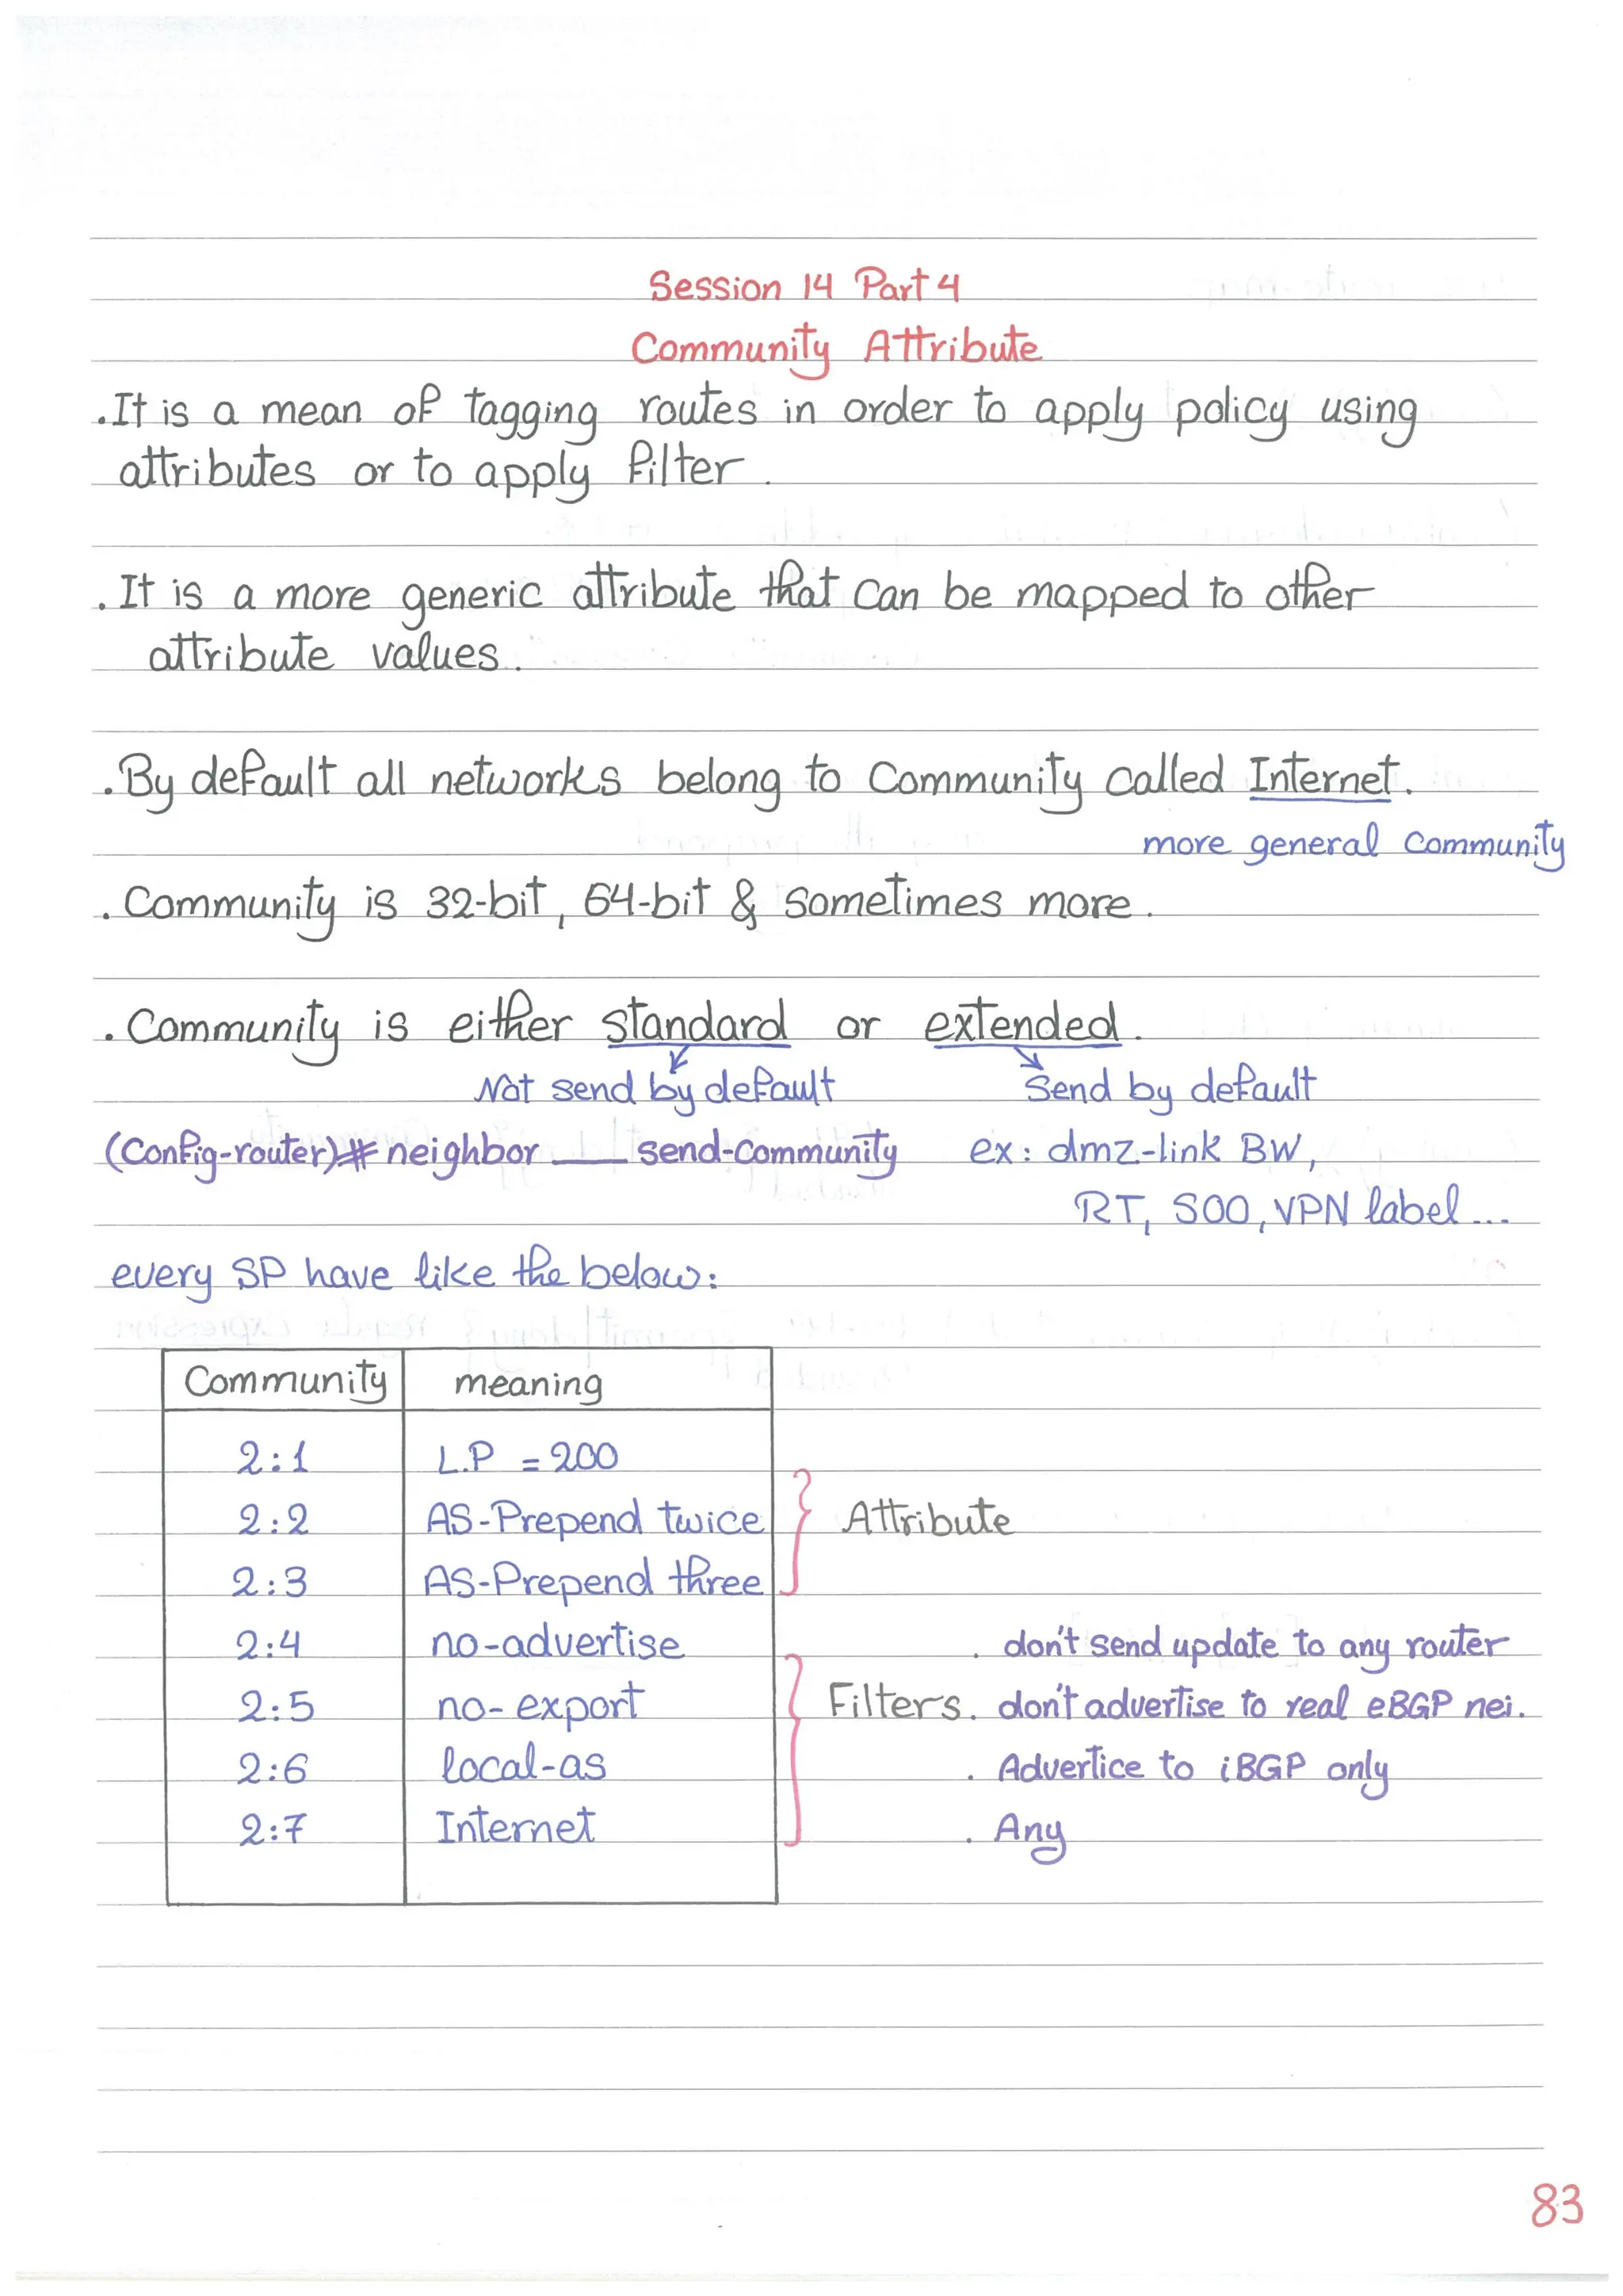 Session 14 Part 4
Community Attribute
. It is a mean of tagging routes in order to apply policy using
attributes or to apply filter.
. It is a more generic attribute that can be mapped to other
attribute values.
. By default all networks belong to Community called Internet.
more general Community
. Community is 32-bit, 64-bit & sometimes more.
. Community is either standard or extended.
Not send by default Send by default
(Config-router)# neighbor ___ send-community ex: dmz-link BW,
RT, SOO, VPN label ...
every SP have like the below:
Community meaning
2:1 L.P = 200
2:2 AS-Prepend twice Attribute
2:3 AS-Prepend three
2:4 no-advertise . don't send update to any router
2:5 no-export Filters . don't advertise to real eBGP nei.
2:6 local-as . Advertice to iBGP only
2:7 Internet . Any
83